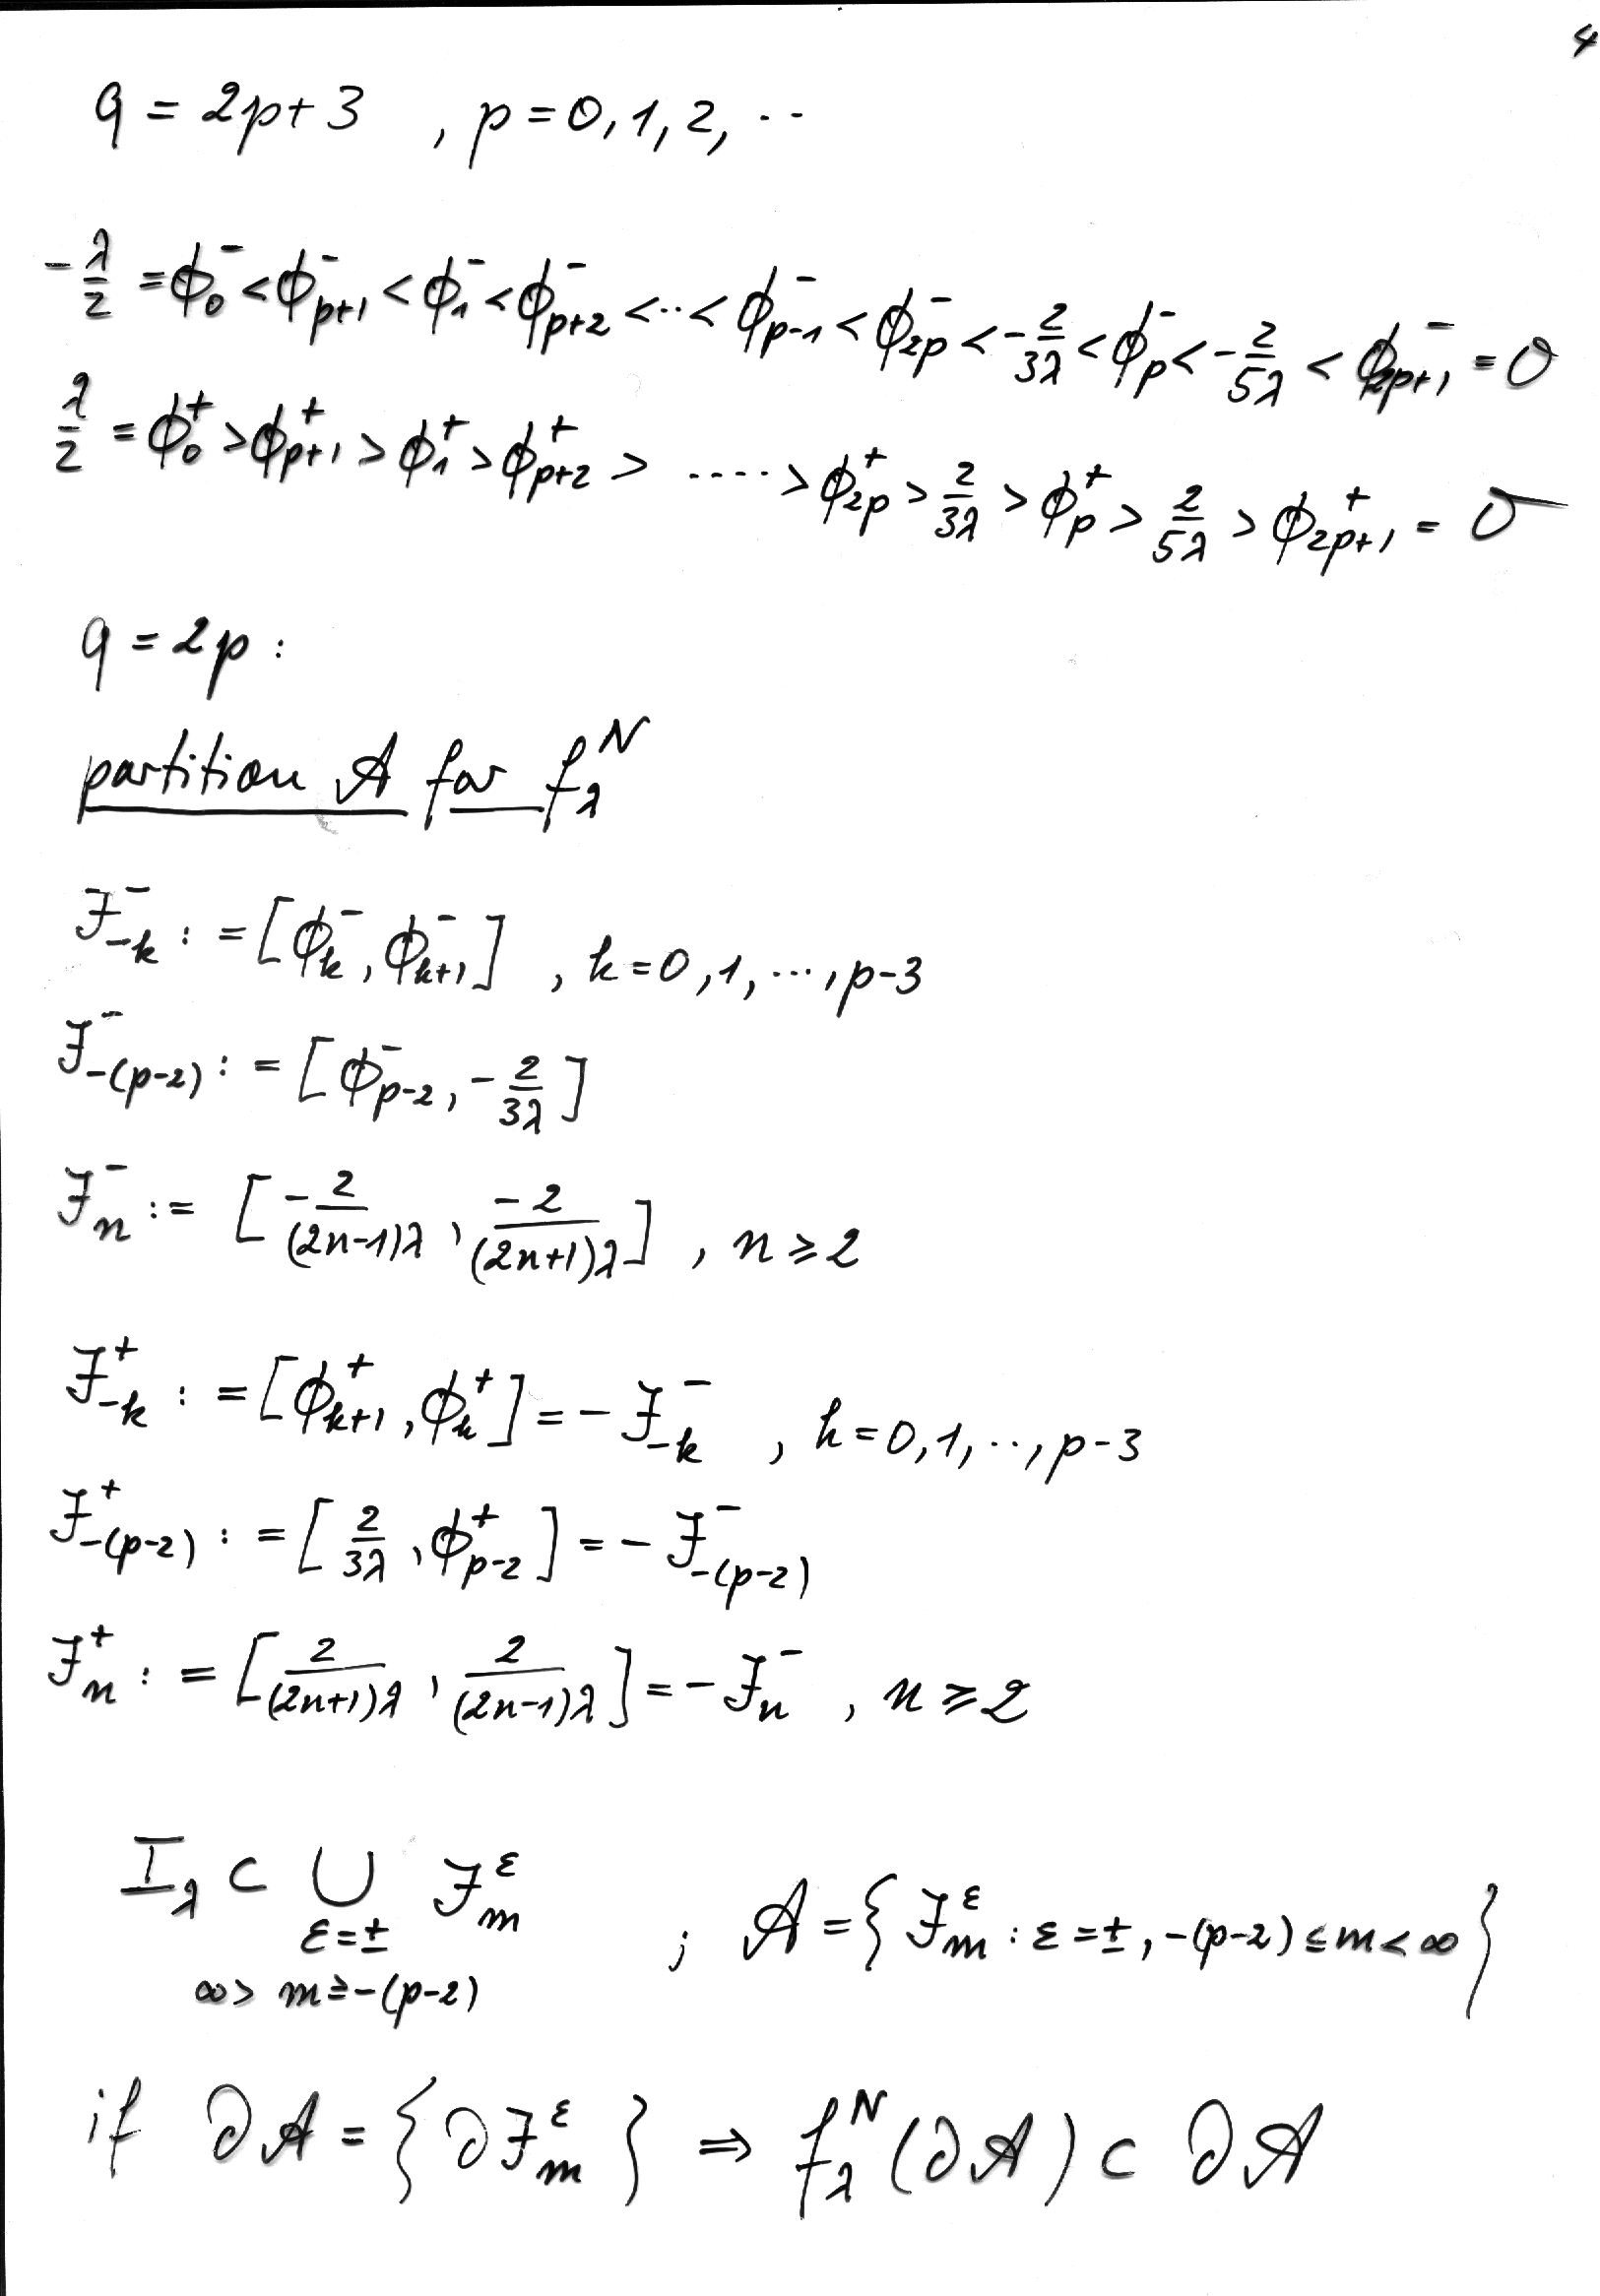 4
q = 2p+3 , p = 0, 1, 2, ··
-λ/2 = ϕ₀⁻ < ϕ_{p+1}⁻ < ϕ₁⁻ < ϕ_{p+2}⁻ < ·· < ϕ_{p-1}⁻ < ϕ_{2p}⁻ < -2/3λ < ϕ_p⁻ < -2/5λ < ϕ_{2p+1}⁻ = 0
λ/2 = ϕ₀⁺ > ϕ_{p+1}⁺ > ϕ₁⁺ > ϕ_{p+2}⁺ > ····· > ϕ_{2p}⁺ > 2/3λ > ϕ_p⁺ > 2/5λ > ϕ_{2p+1}⁺ = 0
q = 2p :
partition 𝒜 for f_λ^N
J_{-k}^- := [ϕ_k^-, ϕ_{k+1}^-] , k = 0, 1, ···, p-3
J_{-(p-2)}^- := [ϕ_{p-2}^-, -2/3λ]
J_n^- := [-2/(2n-1)λ, -2/(2n+1)λ] , n ≥ 2
J_{-k}^+ := [ϕ_{k+1}^+, ϕ_k^+] = -J_{-k}^- , k = 0, 1, ··, p-3
J_{-(p-2)}^+ := [2/3λ, ϕ_{p-2}^+] = -J_{-(p-2)}^-
J_n^+ := [2/(2n+1)λ, 2/(2n-1)λ] = -J_n^- , n ≥ 2
I_λ ⊂ ∪_{ε=±, ∞> m ≥ -(p-2)} J_m^ε ; 𝒜 = {J_m^ε : ε = ±, -(p-2) ≤ m < ∞}
if ∂𝒜 = {∂J_m^ε} ⇒ f_λ^N(∂𝒜) ⊂ ∂𝒜